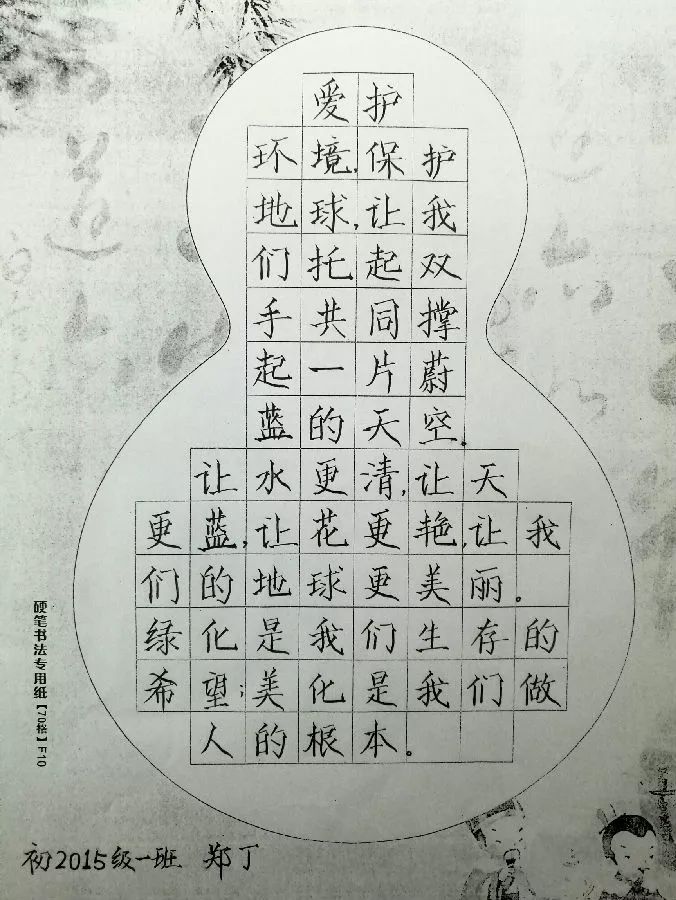 爱护
环境,保护
地球,让我
们托起双
手共同撑
起一片蔚
蓝的天空。
让水更清,让天
更蓝,让花更艳,让我
们的地球更美丽。
绿化是我们生存的
希望;美化是我们做
人的根本。
硬笔书法专用纸【70格】F10
初2015级一班 郑丁